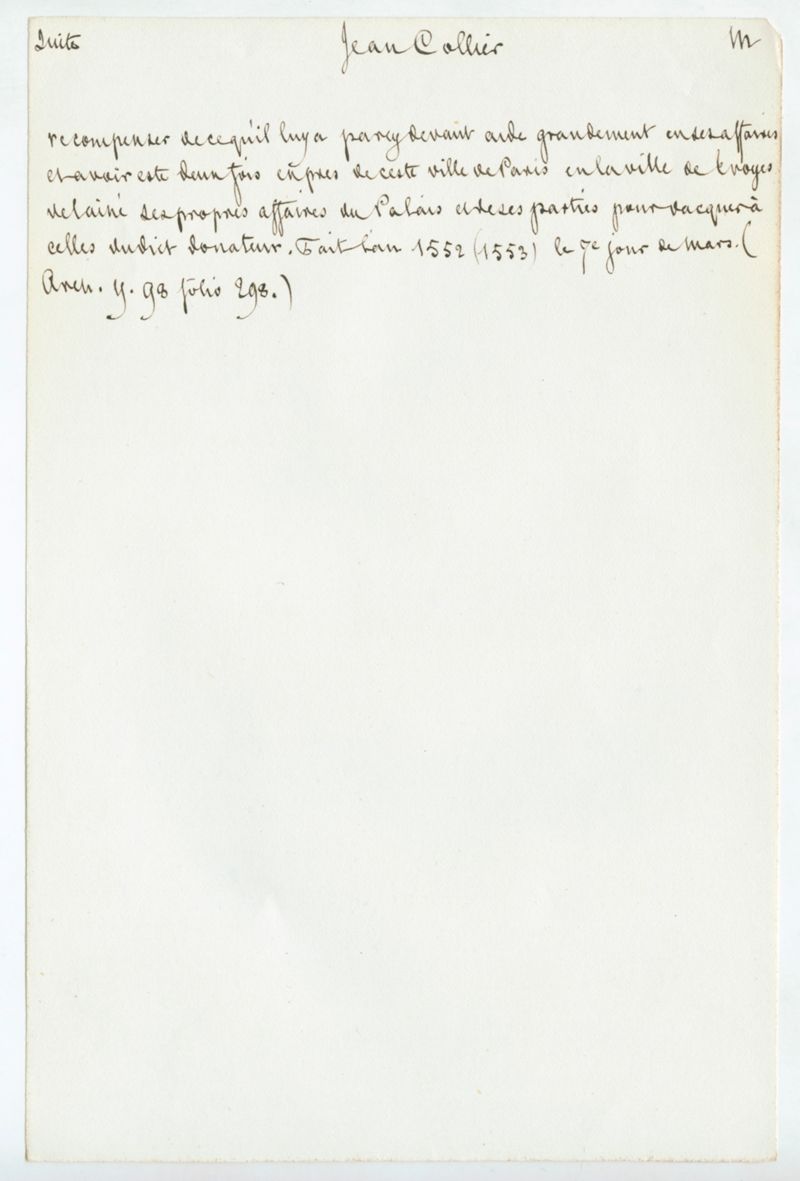 Suite Jean Collier M
recompenser de ce qu'il luy a par cy devant aide grandement en ses affaires
et avoir este deux fois expres de ceste ville de Paris en la ville de Troyes
delaisse ses propres affaires du Palais et de ses parties pour vacquer à
celles du dict donateur. Fait l'an 1552 (1553) le 7e jour de Mars. (
Arch. Y. 98 folio 298.)